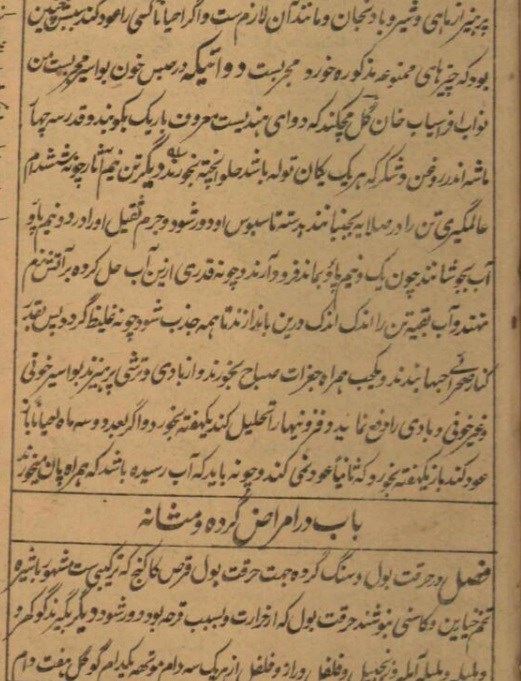 پرهیز از ماهی و شیر و بادنجان و مانند آن لازم ست و اگر احیاناً کسی را عود کند
بود که چیزهای ممنوعه مذکوره خورد مجرب ست دوائیکه در حبس خون بواسیر مجرب ست من
نواب افراسیاب خان گل مچکند که دوای هندیست معروف باریک بکوبند و قدر سه چهار
ماشه اندر روغن و شکر که هر یک یکان توله باشد حلوا پخته بخورند دیگر تن نیم آثار چونه ششدام
عالمگیری تن را در صلایه بجنبانند بدسته تا سبوس او دور شود و جرم ثقیل او را در دو نیم پاو
آب بجوشانند چون یک و نیم پاؤ بماند فرود آرند و چونه قدری ازین آب حل کرده بر آتش نرم
نهند و آب بقیه تن را اندک اندک درین باندازند تا همه جذب شود چونه غلیظ گردد پس بقدر
کنار صحرائی حبها بندند و یک حب همراه جغرات صباح بخورند و از بادی و ترشی پرهیزند بواسیر خونی
و غیر خونی و بادی را دفع نماید و فزونیها را تحلیل کند یکهفته بخورد و اگر بعد دو سه ماه احیاناً باز
عود کند باز یکهفته بخورد که ثانیاً عود نمی کند و چونه باید که آب رسیده باشد که همراه پان میخورند
باب در امراض گرده و مثانه
فصل در حرقت بول و سنگ گرده جهت حرقت بول قرص کاکنج که ترکیبی ست مشهور با شیره
تخم خیارین و کاسنی بنوشند حرقت بول که از حرارت و بسبب قرحه بود دور شود دیگر بگیرند گوکهرو
و هلیله و بلیله آمله و زنجبیل و فلفل دراز و فلفل از هر یک سه دام موتهه یکدام گوگل هفت دام